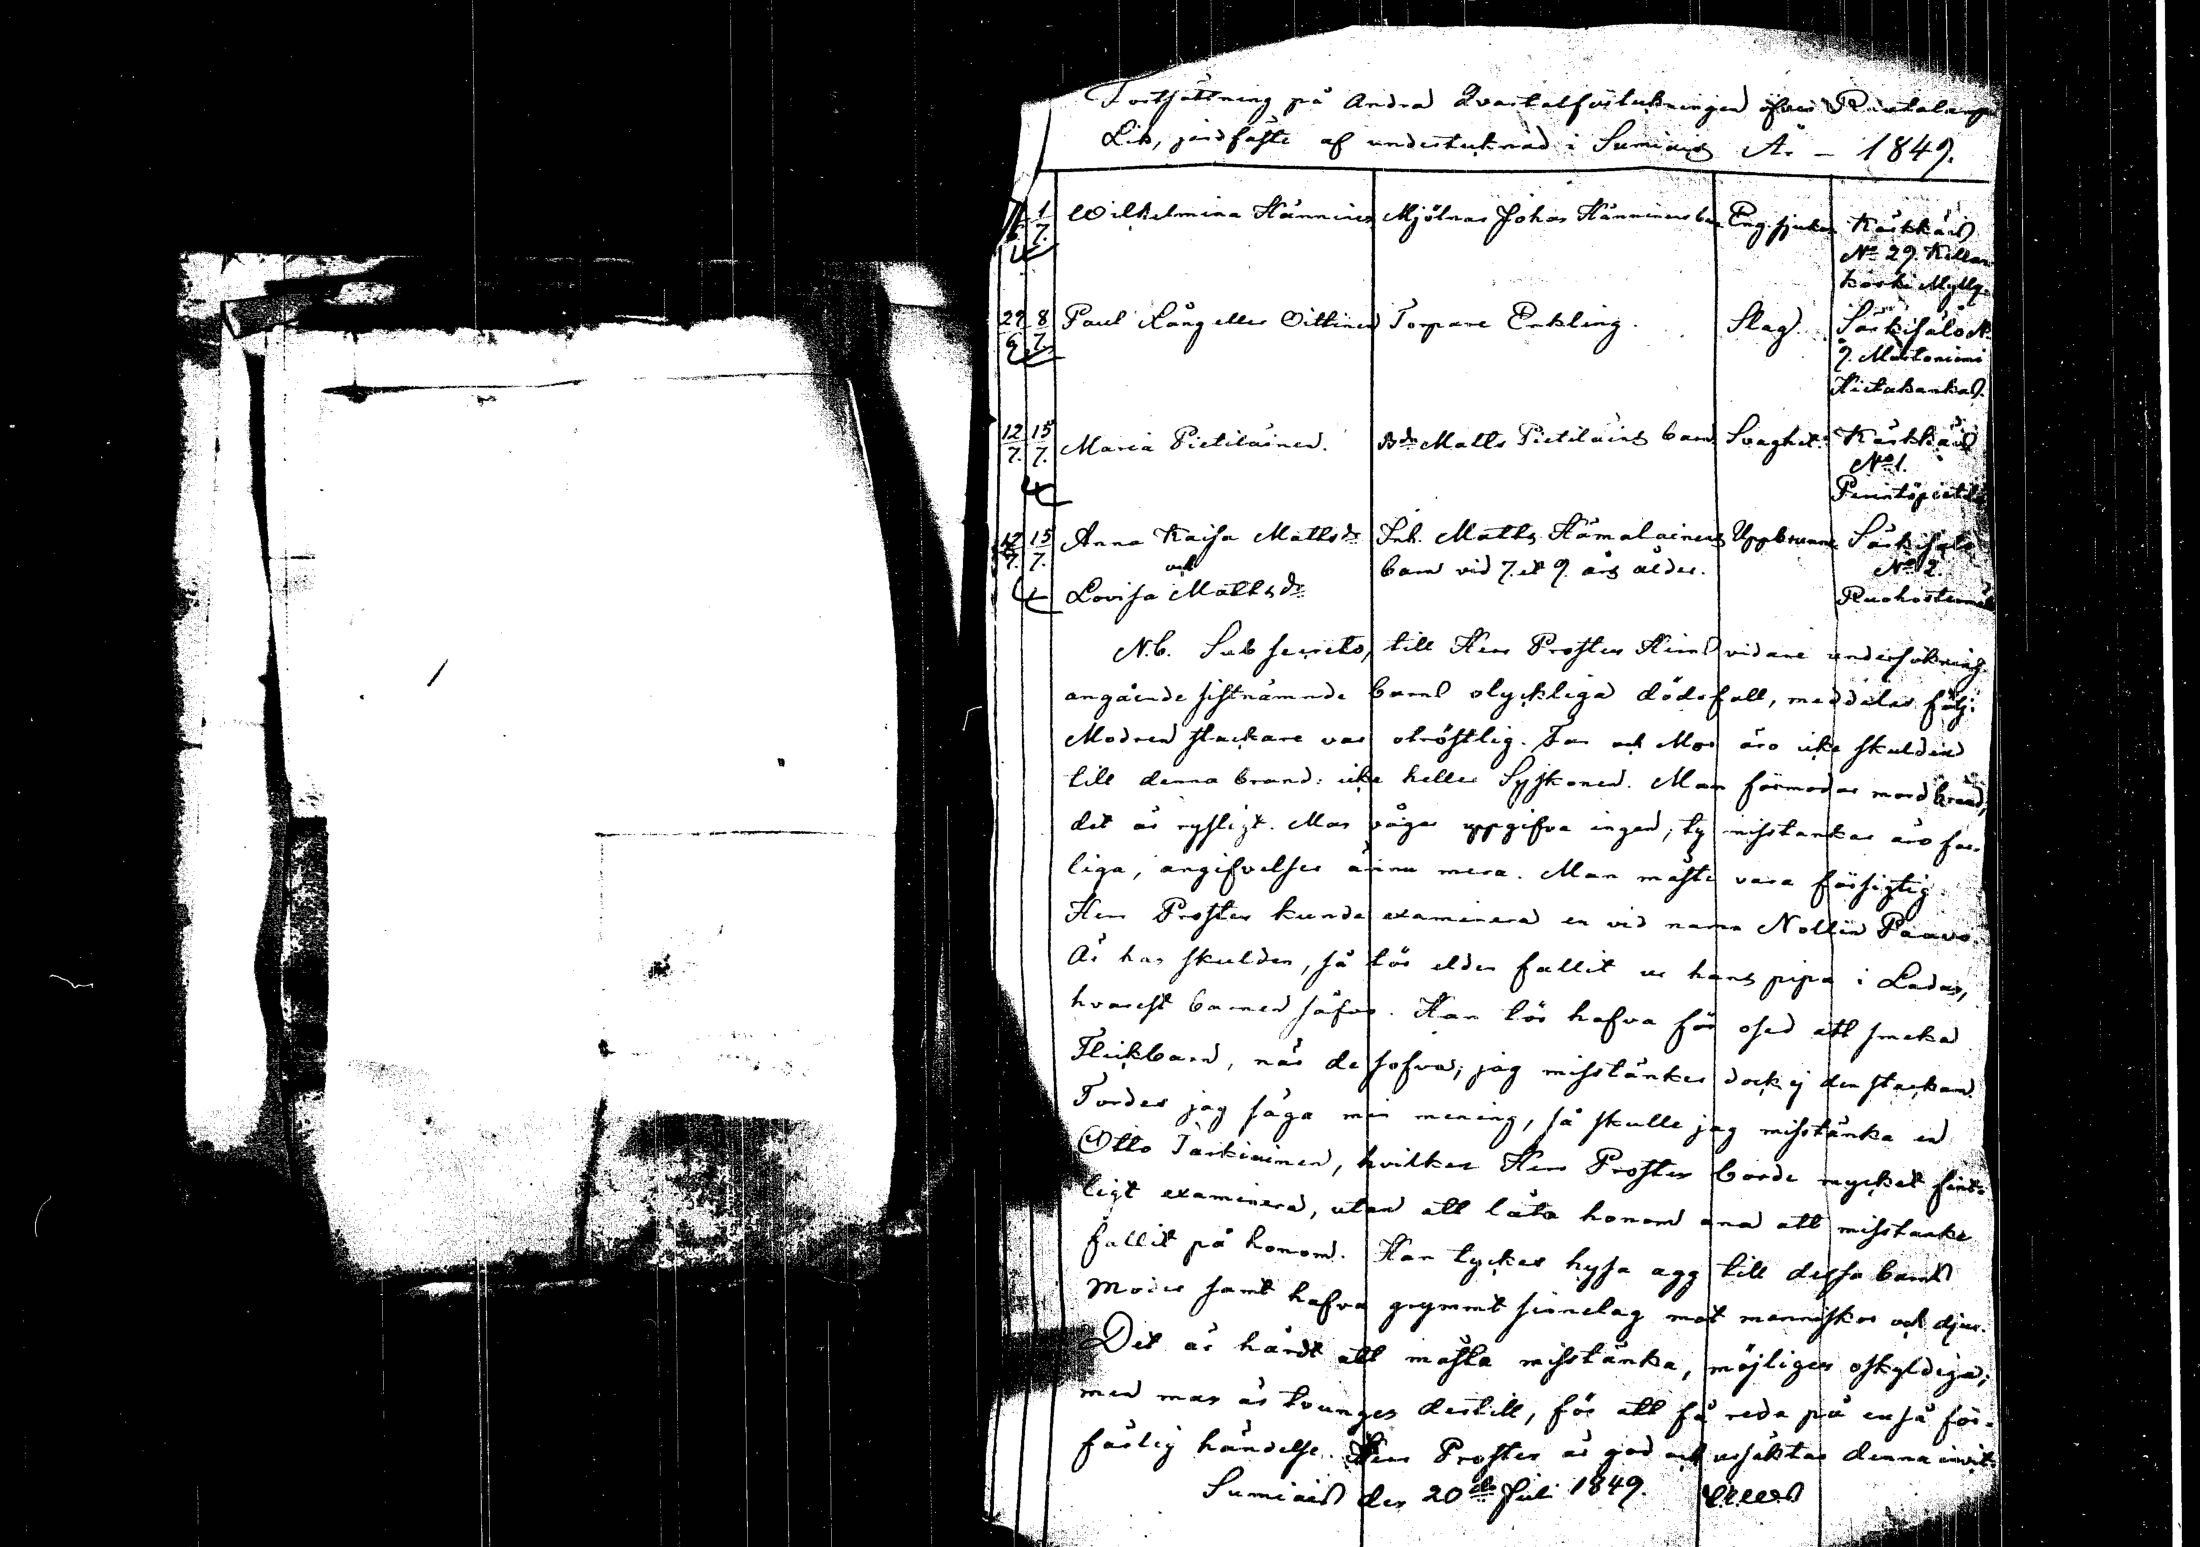 Fortsättning på Andra Qvartalförtekningen öfver Rautalampi
Lik, jordfäste af undertecknad i Sumiais År – 1849.
1/7. Wilhelmina Hänninen Mjölnar Johan Hänninens barn Eng. sjukan Kärkkäis
No 29. Kellan-
koski Mylly.
29/6 8/7. Paul Lång eller Oittinen Torpare Enkling. Slag. Särkisalo N.
9. Martoniemi
Hietakankas.
12/7. 15/7. Maria Pietiläinen. Bdn Matts Pietiläins barn Svaghet. Kärkkäis
No 1.
Perintöpietilä
12/7. 15/7. Anna Kaisa Mattsdr Inh. Matts Hämäläinens Uppbrunne Särkisalo
och barn vid 7. et 9. års ålder. No 2.
Lovisa Mattsdr Ruohosteinmäki
N.b. Sub secreto, till Herr Prosten Heins vidare undersökning
angående sistnämnde barns olyckliga dödsfall, meddelas följ:
Modren stackare var otröstlig. Far och Mor äro icke skulden
till denna brand: icke heller Syskonen. Man förmodar mordbrand,
det är rysligt. Man vågar uppgifva ingen, ty misstankar äro far-
liga, angifvelser ännu mera. Man måste vara försigtig.
Herr Prosten kunde examinera en vid namn Nollin Paavo.
Är han skulden, så lör elden fallit ur hans pipa i Ladan,
hvarest barnen säfvo. Han lör hafva för osed att smeka
Flickbarn, när de sofva; jag misstänker dock ej den stackarn.
Tordes jag säga min mening, så skulle jag misstänka en
Otto Tarkiainen, hvilken Herr Prosten borde mycket fint-
ligt examinera, utan att låta honom ana att misstanke
fallit på honom. Han tyckes hysa agg till dessa barns
Moder samt hafva grymmt sinnelag mot menniskor och djur.
Det är hårdt att måsta misstänka, möjligen oskyldiga;
men man är tvungen dertill, för att få reda på en så för-
färlig händelse. Herr Prosten är god och ursäktar denna
Sumiais den 20de Juli 1849.